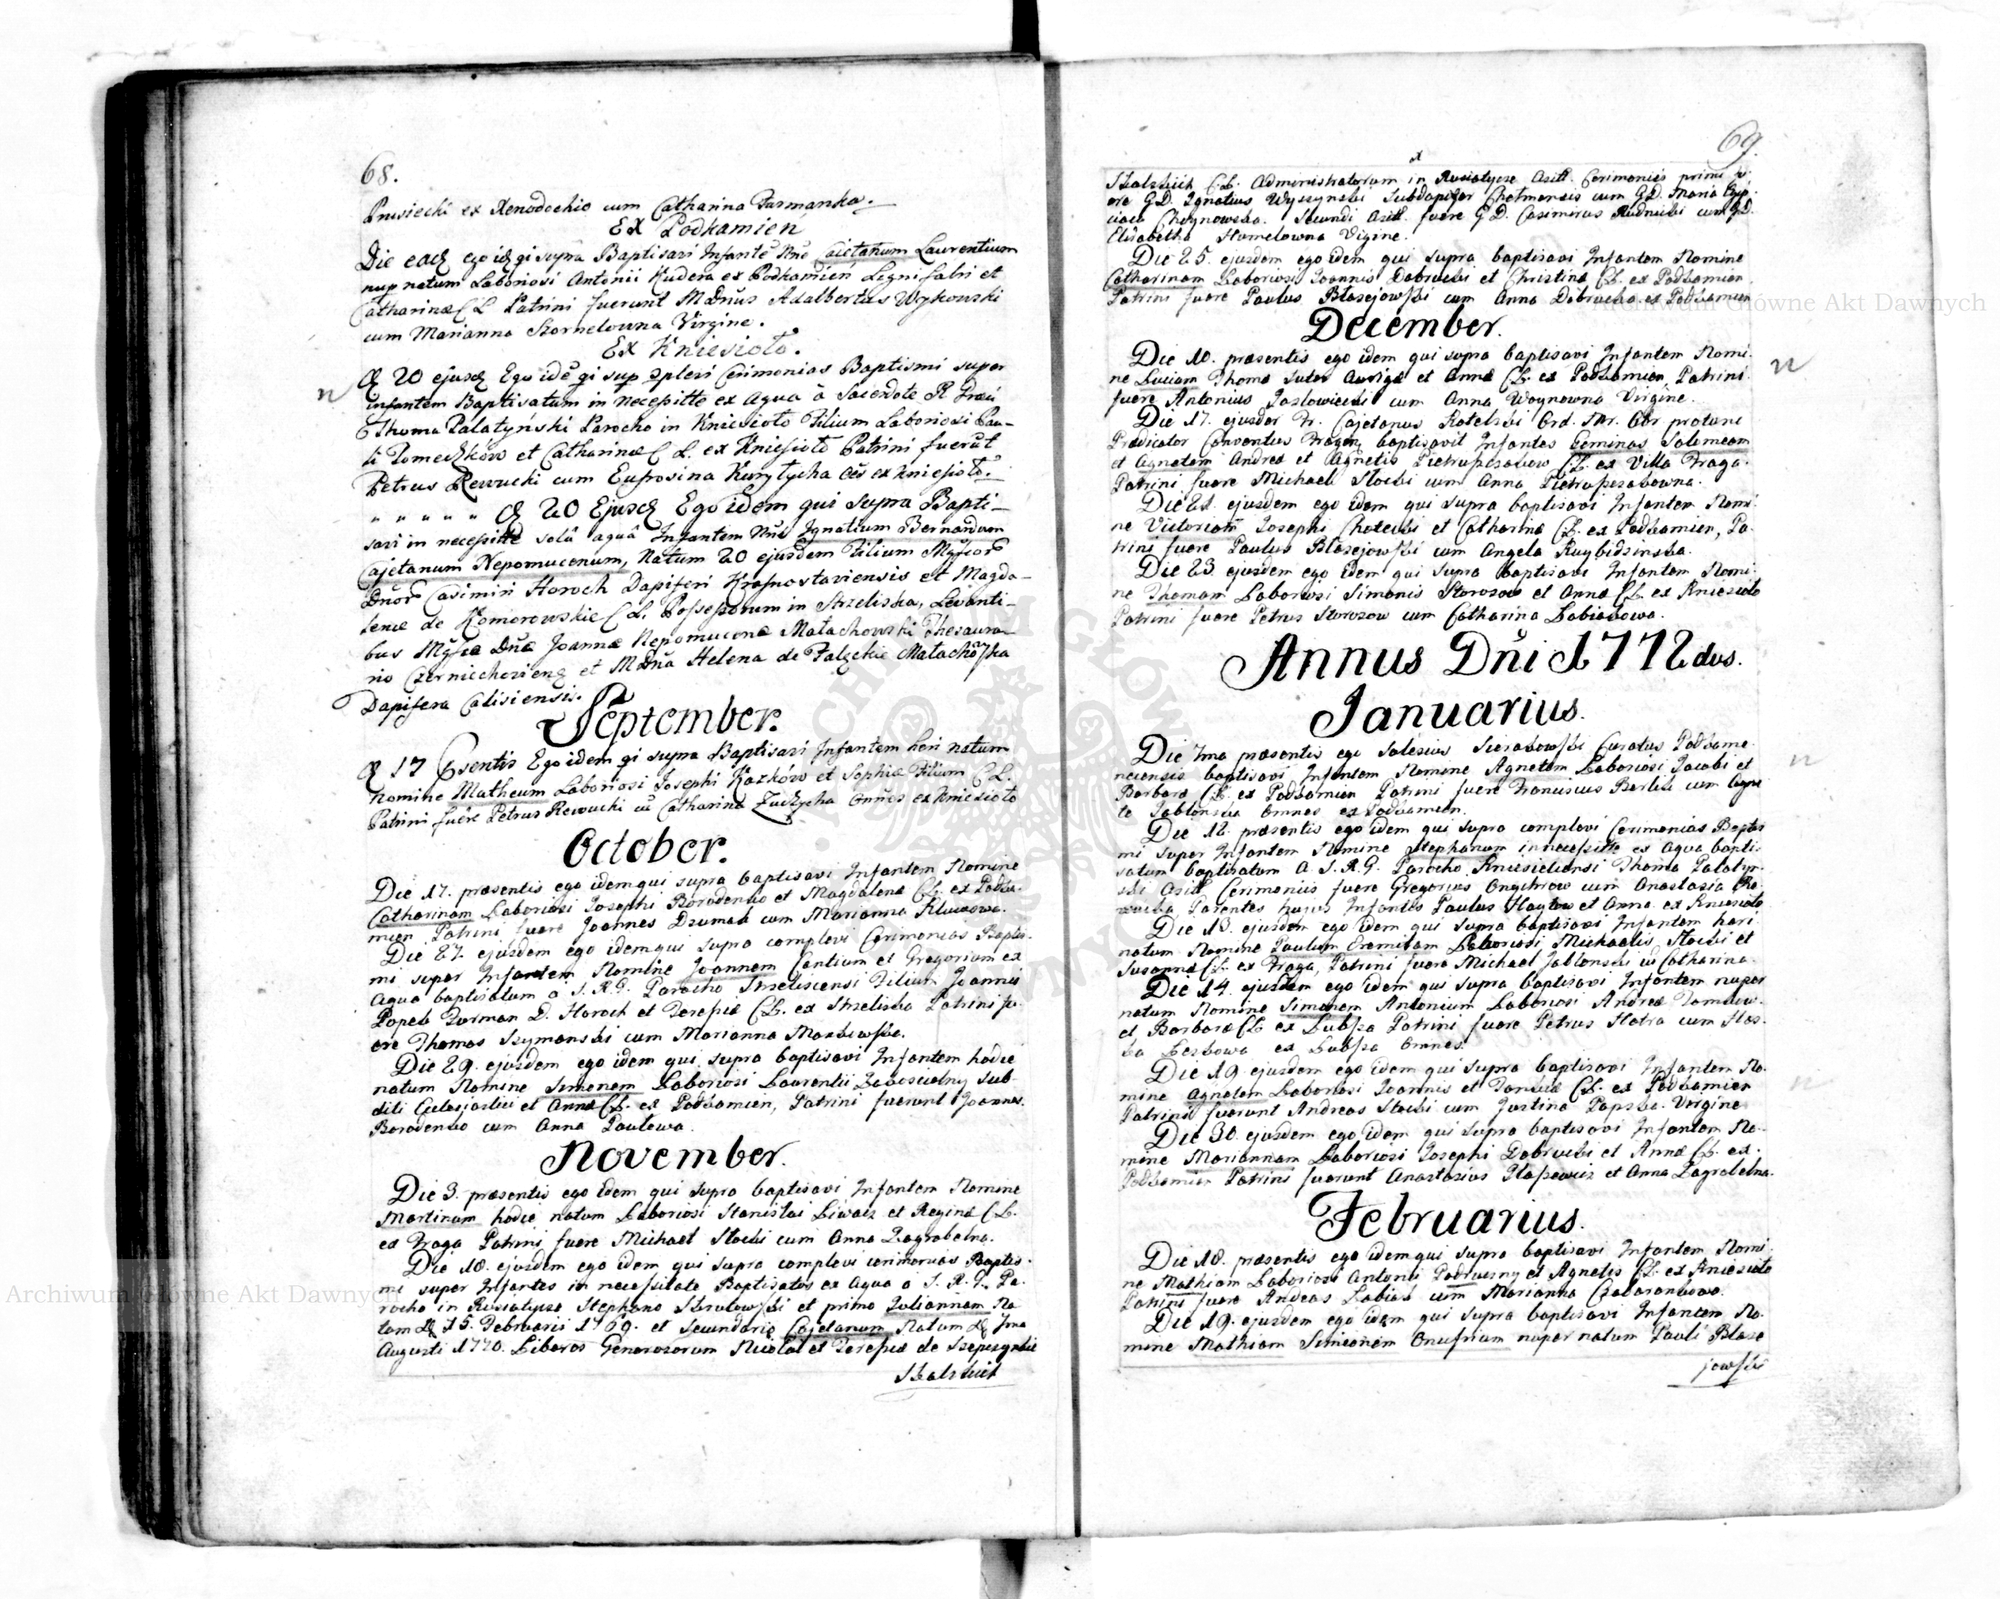 68.
Pruwiecki ex Xenodochio cum Catharina Furmanka.
Ex Podkamień
Die eadē ego idē qi supra Baptisavi Infantē Nnē Caietanum Laurentium
nup natum Laboriosi Antonii Kudera ex Podkamień Lignifabri et
Catharinæ C L Patrini fuerunt MDnūs Adalbertus Wykowski
cum Marianna Skornelowna Virgine.
Ex Kniesioło.
20 ejusd Ego idē qi sup Cerimonias Baptismi super
infantem Baptisatum in necessitte ex Aqua à Sacerdote R Græci
Thoma Palatyński Parocho in Kniesioło Filium Laboriosi Pau-
li Tomeczków et Catharinæ C L. ex Kniesioło Patrini fuerūt
Petrus Rewucki cum Euprosina Kurytycha oēs ex Kniesioło.
" " " " " 20 Ejusd Ego idem qui supra Bapti-
savi in necessitte solâ aquâ Infantem Nnē Ignatium Bernardum
Cajetanum Nepomucenum, Natum 20 ejusdem Filium
Casimiri Horoch Dapiferi Krasnostaviensis et Magda-
lenæ de Komorowskie C L. Possessorum in Strzeliska, Levanti-
bus Dnō Joanne Nepomuceno Małachowski Thesaura-
rio et MDnā Helena de Małachowska
Dapifera Calisiensi.
September.
17 Ego idem qi supra Baptisavi Infantem heri natum
Nomine Matheum Laboriosi Josephi Kazków et Sophiæ Filium C L.
Patrini fuēre Petrus Rewucki cū Catharina omēs ex Kniesioło
October.
Die 17. præsentis ego idem qui supra baptisavi Infantem Nomine
Catharinam Laboriosi Josephi Borodenko et Magdalenæ CL. ex Podka-
mien Patrini fuere Joannes Dzumak cum Marianna
Die 27. ejusdem ego idem qui supra complevi Cerimonias Baptis-
mi super Infantem Nomine Joannem Cantium et Gregorium ex
Aqua baptisatum a S. R. G. Parocho Strzeliscensi Filium Joannis
Popek Furman D. Horoch et Teresiæ CL. ex Strzeliska Patrini fu-
ere Thomas Szymanski cum Marianna
Die 29. ejusdem ego idem qui supra baptisavi Infantem hodie
natum Nomine Simonem Laboriosi Laurentii sub-
diti et Annæ CL. ex Podkamien, Patrini fuerunt Joannes
Borodenko cum Anna Pawlowa.
November.
Die 3. præsentis ego idem qui supra baptisavi Infantem Nomine
Martinum hodie natum Laboriosi Stanislai et Reginæ CL.
ex Fraga Patrini fuere Michael Stocki cum Anna Zagrobelna.
Die 18. ejusdem ego idem qui supra complevi cerimonias Baptis-
mi super Infantes in necessitate Baptisatos ex Aqua a S. R. G. Pa-
rocho in Rusiatycze Stephano et primo Juliannam Na-
tam 15. Februarii 1769. et secundario Cajetanum Natum 7ma
Augusti 1770. Liberos Generosorum Nicolai et Teresiæ de
Skalskich
69.
Skalskich CL. Administratorum in Rusiatycze Asitt. Cerimoniis primi fu-
ere GD. Ignatius Wyszynski Subdapifer Chelmensis cum GD. Maria
Choynowska. Secundi Asitt. fuere GD. Casimirus Rudnicki cum GD.
Elisabetha Homelowna Virgine.
Die 25. ejusdem ego idem qui supra baptisavi Infantem Nomine
Catharinam Laboriosi Joannis Dobrucki et Christinæ CL. ex Podkamien
Patrini fuere Paulus Błasejowski cum Anna Dobrucka ex Podkamien
December.
Die 10. præsentis ego idem qui supra baptisavi Infantem Nomi-
ne Luciam Thomæ Sutor Aurigæ et Annæ CL. ex Podkamien, Patrini
fuere Antonius Jazlowiecki cum Anna Woynowna Virgine.
Die 17. ejusdem Fr. Cajetanus Ord. protunc
Prædicator Conventus baptisavit Infantes Geminas Salomeam
et Agnetem Andreæ et Agnetis CL. ex Villa Fraga.
Patrini fuere Michael Stocki cum Anna
Die 21. ejusdem ego idem qui supra baptisavi Infantem Nomi-
ne Victoriam Josephi Chotecki et Catharinæ CL. ex Podkamien, Pa-
trini fuere Paulus Błasejowski cum Angela
Die 23. ejusdem ego idem qui supra baptisavi Infantem Nomi-
ne Thomam Laboriosi Simonis Storozow et Annæ CL. ex Kniesiolo
Patrini fuere Petrus Storozow cum Catharina Labiakowa.
Annus Dñi 1772 dus.
Januarius.
Die 7ma præsentis ego Salesius Sierakowski Curatus Podkame-
necensis baptisavi Infantem Nomine Agnetem Laboriosi Jacobi et
Barbaræ CL. ex Podkamien Patrini fuere Franciscus cum Agne-
te Jablonska omnes ex Podkamien.
Die 12. præsentis ego idem qui supra complevi Cerimonias Baptis-
mi super Infantem Nomine Stephanum in necessitte ex Aqua bapti-
satum baptisatum a S. R. G. Parocho Kniesielensi Thoma Palatyn-
ski Asitt. Cerimoniis fuere Gregorius cum Anastasia
Parentes hujus Infantis Paulus et Anna ex Kniesiolo
Die 13. ejusdem ego idem qui supra baptisavi Infantem heri
natum Nomine Paulum Eremitam Laboriosi Michaelis Stocki et
Susannæ CL. ex Fraga, Patrini fuere Michael Jablonski cū Catharina.
Die 14. ejusdem ego idem qui supra baptisavi Infantem nuper
natum Nomine Simonem Antonium Laboriosi Andreæ
et Barbaræ CL ex Lubsza Patrini fuere Petrus cum
ex Lubsza omnes.
Die 19 ejusdem ego idem qui supra baptisavi Infantem No-
mine Agnetem Laboriosi Joannis et CL. ex Podkamien
Patrini fuerunt Andreas Stocki cum Justina Virgine
Die 30. ejusdem ego idem qui supra baptisavi Infantem No-
mine Mariannam Laboriosi Josephi Dobrucki et Annæ CL. ex
Podkamien Patrini fuerunt Anastasius et Anna Zagrobelna.
Februarius.
Die 18. præsentis ego idem qui supra baptisavi Infantem Nomi-
ne Mathiam Laboriosi Antonii et Agnetis CL. ex Kniesiolo
Patrini fuere Andreas Labiak cum Marianna
Die 19. ejusdem ego idem qui supra baptisavi Infantem No-
mine Mathiam Simeonem Onufrium nuper natum Pauli Błase-
jowski
Archiwum Główne Akt Dawnych
Archiwum Główne Akt Dawnych